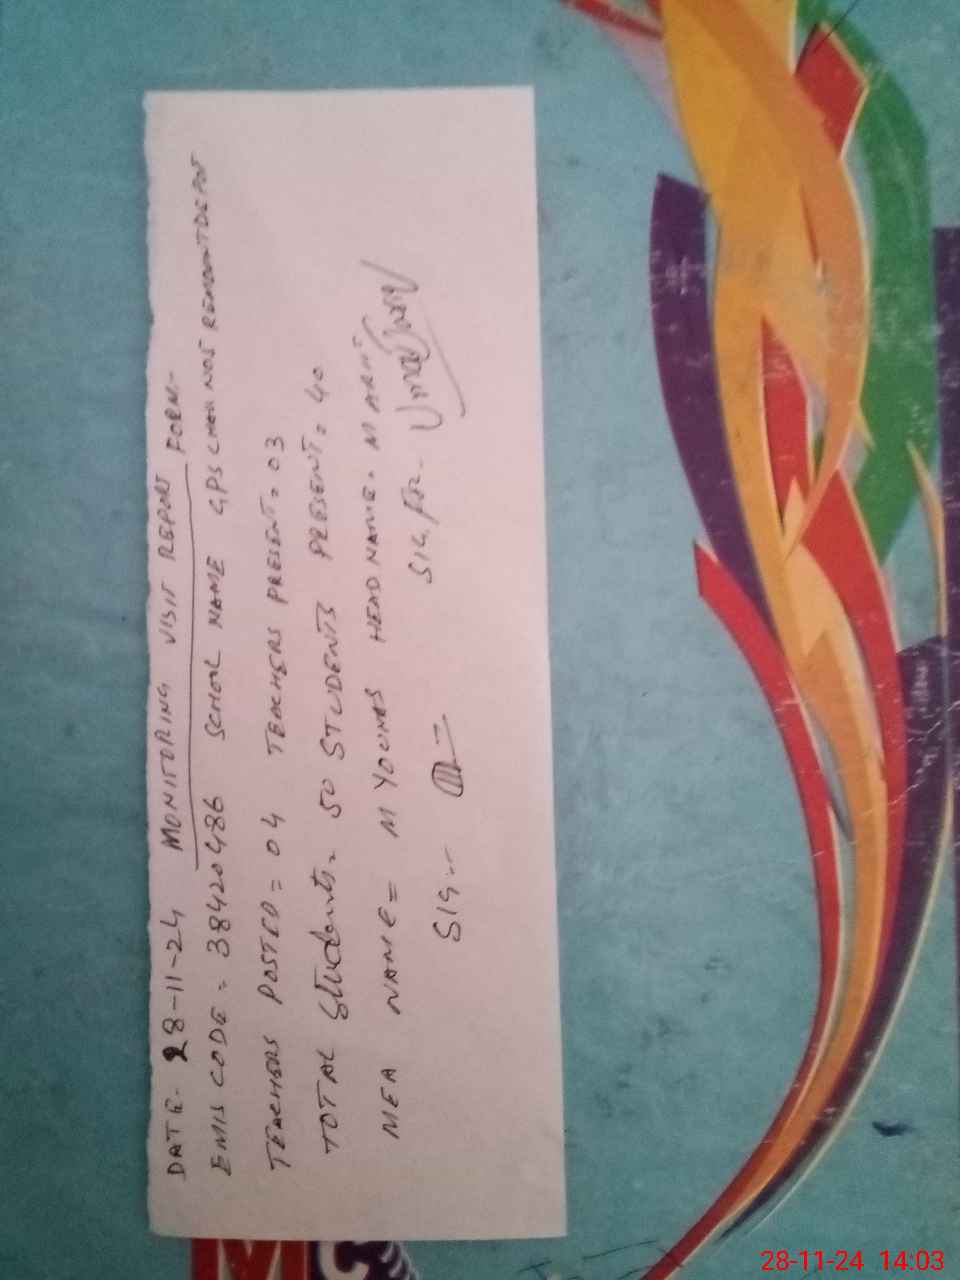 DATE. 28-11-24 MONITORING VISIT REPORT FORM-
EMIS CODE = 38420486 SCHOOL NAME GPS CHAK NO5 REMOUNTDEPOT
TEACHERS POSTED = 04 TEACHERS PRESENT = 03
TOTAL Students = 50 STUDENTS PRESENT = 40
MEA NAME = M YOUNAS HEAD NAME = M ARIF
SIG.- SIG, FOR.
28-11-24 14:03